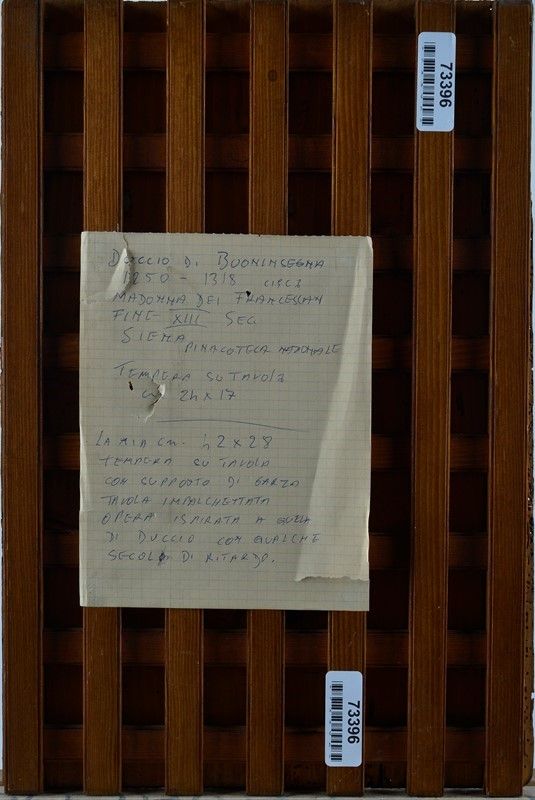 73396
DUCCIO DI BUONINSEGNA
1250 - 1318 CIRCA
MADONNA DEI FRANCESCAN
FINE XIII SEC
SIENA
PINACOTECA NAZIONALE
TEMPERA SU TAVOLA
24 X 17
LA MIA CM. 42 X 28
TEMPERA SU TAVOLA
CON SUPPORTO DI GARZA
TAVOLA IMPALCHETTATA
OPERA ISPIRATA A QUELA
DI DUCCIO CON QUALCHE
SECOLO DI RITARDO.
73396